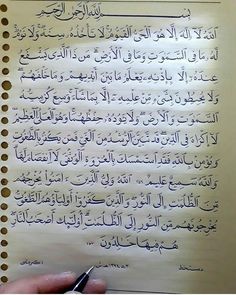 بسم الله الرحمن الرحیم
الله لا اله الا هو الحی القیوم لا تاخذه سنة ولا نوم
له ما فی السموات وما فی الارض من ذا الذی یشفع
عنده الا باذنه یعلم ما بین ایدیهم وما خلفهم
ولا یحیطون بشیء من علمه الا بما شاء وسع کرسیه
السموات والارض ولا یؤده حفظهما وهو العلی العظیم
لا اکراه فی الدین قد تبین الرشد من الغی فمن یکفر بالطاغوت
ویؤمن بالله فقد استمسک بالعروة الوثقی لا انفصام لها
والله سمیع علیم الله ولی الذین امنوا یخرجهم
من الظلمات الی النور والذین کفروا اولیاؤهم الطاغوت
یخرجونهم من النور الی الظلمات اولئک اصحاب النار
هم فیها خالدون